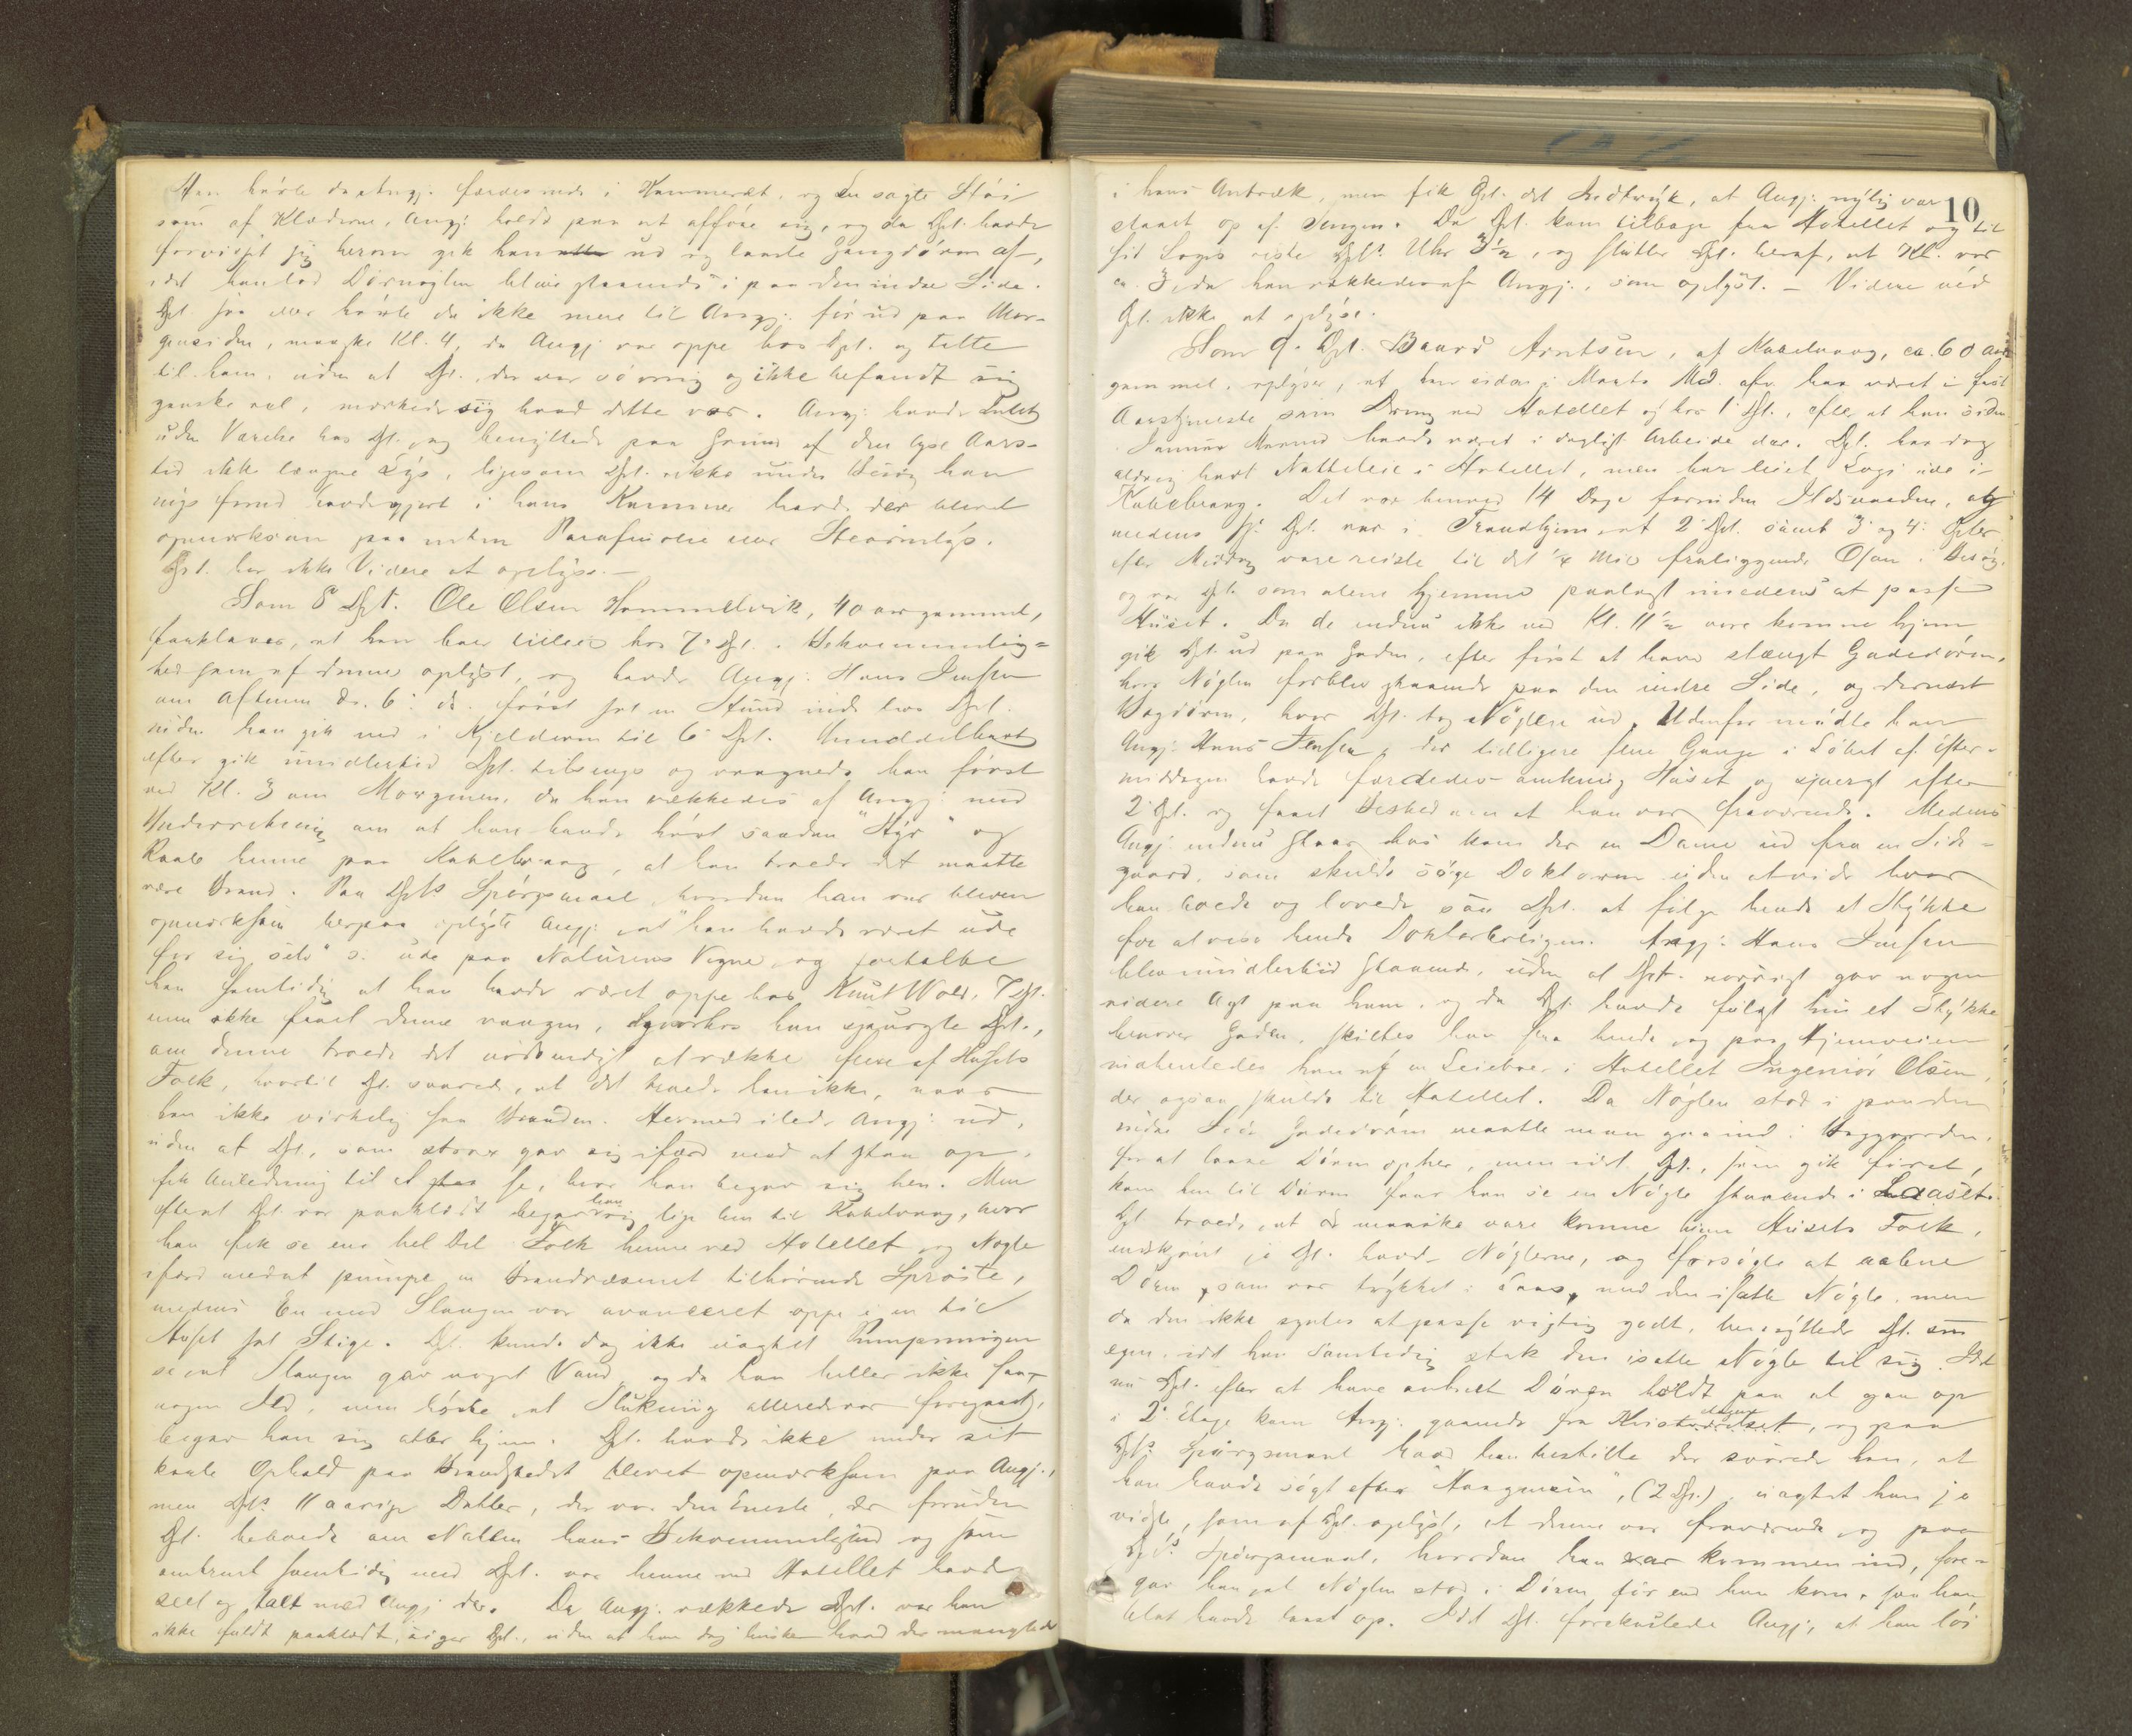 Han hørte da Angj. færdes inde i Kammeret, og en sagte Støi
som af Klæderne, Angj. holdt paa at afføre sig, og da Dpt. havde
forvisset sig herom gik han ud og laaste Gangdøren af,
idet han lod Dørnøglen blive staaende i paa den indre Side.
Dpt. saa eller hørte da ikke mere til Angj. før ud paa Mor-
gensiden, maaske Kl. 4, da Angj. var oppe hos Dpt. og talte
til ham, uden at Dpt., der var søvnig og ikke befandt sig
ganske vel, mærkede sig hvad dette var. Angj. havde
uden Varme hos Dpt. og benyttede paa Grund af den lyse Aars-
tid ikke længre Lys, ligesom Dpt. ikke under
havde gjort i hans Kammer havde der blevet
opmærksom paa enten Parafinolie eller Stearinlys.
Dpt. har ikke Videre at oplyse. —
Som 8 Dpt. Ole Olsen Hommelvik, 40 aar gammel,
forklarer, at han bor tilleie hos 7de Dpt. i Bekvemmelig-
hed som af denne oplyst, og havde Angj. Hans Jensen
om Aftenen d. 6: ds. først sat en Stund inde hos Dpt.
inden han gik ned i Kjelderen til 6 Dpt. Umiddelbart
efter gik imidlertid Dpt. tilsengs og vaagnede han først
ved Kl. 3 om Morgenen, da han vækkedes af Angj. med
Underretning om at han havde hørt saadan "Styr" og
Raab henne paa Kabelvaag, at han troede det maatte
være Brand. Paa Dpts Spørgsmaal hvordan han var bleven
opmærksom herpaa oplyste Angj. at "han havde været ude
for sig selv" o: ude paa Naturens Vegne, og fortalte
han samtidig at han havde været oppe hos Knut Wold, 7 Dpt.
men ikke faaet denne vaagen, hvorhos han spurgte Dpt.,
om denne troede det nødvendigt at vække flere af Husets
Folk, hvortil Dpt. svarede, at det troede han ikke, naar
han ikke virkelig saa Branden. Hermed ilede Angj. ud,
uden at Dpt., som strax gav sig ifærd med at staa op,
fik Anledning til at se, hvor han begav sig hen. Men
efterat Dpt. var paaklædt begav han sig lige hen til Kabelvaag, hvor
han fik se en hel Del Folk henne ved Hotellet og Nogle
ifærd med at pumpe en Brandvæsenet tilhørende Sprøite,
medens En med Slangen var avanceret oppe i en til
Huset sat Stige. Dpt. kunde dog ikke uagtet Pumpningen
se at Slangen gav noget Vand, og da han heller ikke saa
nogen Ild, men hørte at Slukning allerede var foregaaet,
begav han sig atter hjem. Dpt. havde ikke under sit
korte Ophold paa Brandstedet blevet opmærksom paa Angj.,
men Dpts 11 aarige Datter, der var den Eneste, der foruden
Dpt. beboede om Natten hans Bekvemmelighed og som
omtrent samtidig med Dpt. var henne ved Hotellet havde
seet og talt med Angj. der. Da Angj. vækkede Dpt. var han
ikke fuldt paaklædt, siger Dpt., uden at han dog husker hvad der manglede
10
i hans Antræk, men fik Dpt. det Indtryk, at Angj. nylig var
staaet op af Sengen. Da Dpt. kom tilbage fra Hotellet og til
sit Logis viste Dpts. Uhr 3½, og slutter Dpt. heraf, at Kl. var
ca. 3 da han vækkedes af Angj., som oplyst. — Videre ved
Dpt. ikke at oplyse.
Som 9. Dpt. Baard Arntsen, af Kabelvaag, ca. 60 Aar
gammel, oplyser, at han siden i Marts Md. afv. har været i fast
Aarstjeneste som Dreng ved Hotellet og hos 1 Dpt., efter at han siden
Januar Maaned havde været i dagligt Arbeide der. Dpt. har dog
aldrig havt Natteleie i Hotellet, men har leiet Logi ude i
Kabelvaag. Det var henved 14 Dage forinden Ildsvaaden, og
medens 1ste Dpt. var i Trondhjem, at 2 Dpt. samt 3 og 4: Dpter
efter Middag vare reiste til det ¼ Mil fraliggende Osan i Besøg,
og var Dpt. som alene hjemme paalagt imedens at passe
Huset. Da de endnu ikke ved Kl. 11½ vare komne hjem
gik Dpt. ud paa Gaden, efter først at have stængt Gadedøren,
hvis Nøglen forblev staaende paa den indre Side, og dernæst
Bagdøren, hvor Dpt. tog Nøglen ud. Udenfor mødte han
Angj. Hans Jensen, der tidligere flere Gange i Løbet af Efter-
middagen havde færdedes omkring Huset og spurgt efter
2 Dpt. og faaet Besked om at han var fraværende. Medens
Angj. endnu staar hos kom der en Dame ud fra en Side-
gaard, som skulde søge Doktoren uden at vide hvor
han boede og lovede saa Dpt. at følge hende et Stykke
for at vise hende Doktorboligen. Angj. Hans Jensen
blev imidlertid staaende, uden at Dpt. iøvrigt gav nogen
videre Agt paa ham, og da Dpt. havde fulgt hende et Stykke
henover Gaden, skiltes han fra hende og paa Hjemveien
indhentedes han af en Leieboer i Hotellet Ingeniør Olsen,
der ogsaa skulde til Hotellet. Da Nøglen stod i paa den
indre Side Gadedøren maatte man gaa ind i Baggaarden,
for at laase Døren op her, men idet Dpt., som gik først,
kom hen til Døren faar han se en Nøgle staaende i Laaset.
Dpt. troede, at der maaske vare komne hjem Husets Folk,
endskjønt jo Dpt. havde Nøglerne, og forsøgte at aabne
Døren, som var trykket i Laas, med den isatte Nøgle, men
da den ikke syntes at passe rigtig godt, benyttede Dpt. sin
egen, idet han samtidig stak den isatte Nøgle til sig. Idet
nu Dpt. efter at have aabnet Døren holdt paa at gaa op
i 2. Etage kom Angj. gaaende fra, og paa
Dpts Spørgsmaal hvad han bestilte der svarede han, at
han havde søgt efter "Haagensen", (2 Dpt.), uagtet han jo
vidste, som af Dpt. oplyst, at denne var fraværende og paa
Dpts. Spørgsmaal, hvordan han var kommen ind, fore-
gav han at Nøglen stod i Døren før end han kom, saa han
blot havde laast op. Idet Dpt. forekastede Angj., at han løi